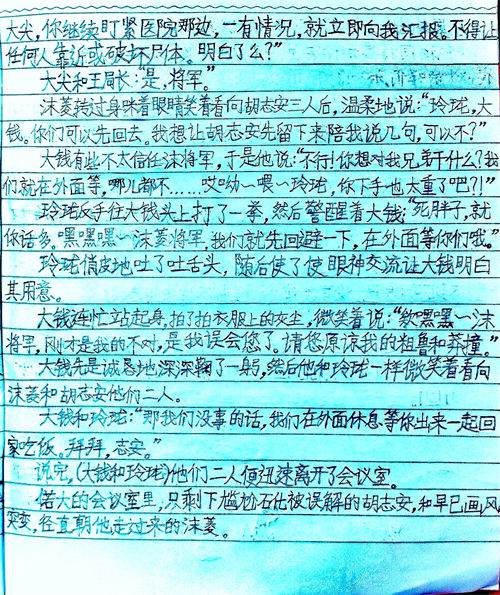 大尖，你继续盯紧医院那边，一有情况，就立即向我汇报。不得让
任何人靠近或破坏尸体。明白了么？”
大尖和王局长：“是，将军。”
沫菱转过身眯着眼睛笑着看向胡志安三人后，温柔地说：“玲珑，大
钱。你们可以先回去。我想让胡志安先留下来陪我说几句，可以不？”
大钱有些不太信任沫将军，于是他说：“不行！你想对我兄弟干什么？我
们就在外面等，哪儿都不……哎呦～喂～玲珑，你下手也太重了吧？！”
玲珑反手往大钱头上打了一拳，然后警醒着大钱：“死胖子，就
你话多。嘿嘿嘿～沫菱将军，我们就先回避一下，在外面等你们哦。”
玲珑俏皮地吐了吐舌头，随后使了使眼神交流让大钱明白
其用意。
大钱连忙站起身，拍了拍衣服上的灰尘，微笑着说：“欸嘿嘿～沫
将军，刚才是我的不对，是我误会您了。请您原谅我的粗鲁和莽撞。”
大钱先是诚恳地深深鞠了一躬，然后他和玲珑一样微笑着看向
沫菱和胡志安他们二人。
大钱和玲珑：“那我们没事的话，我们在外面休息等你出来一起回
家吃饭。拜拜，志安。”
说完，(大钱和玲珑)他们二人便迅速离开了会议室。
偌大的会议室里，只剩下尴尬石化被误解的胡志安，和早已画风
突变，径直朝他走过来的沫菱。